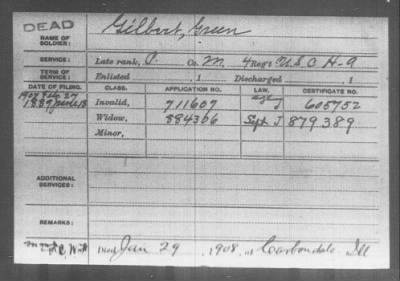 DEAD
NAME OF SOLDIER: Gilbert, Green
SERVICE: Late rank, P. Co. M. 4 Reg't U.S.C. H-A
TERM OF SERVICE: Enlisted , 1 Discharged , 1
DATE OF FILING. CLASS. APPLICATION NO. LAW. CERTIFICATE NO.
Invalid, 711607 605752
Widow, 884306 Sept. J 879389
Minor,
ADDITIONAL SERVICES:
REMARKS:
Died Jan 29, 1908, at Carbondale Ill